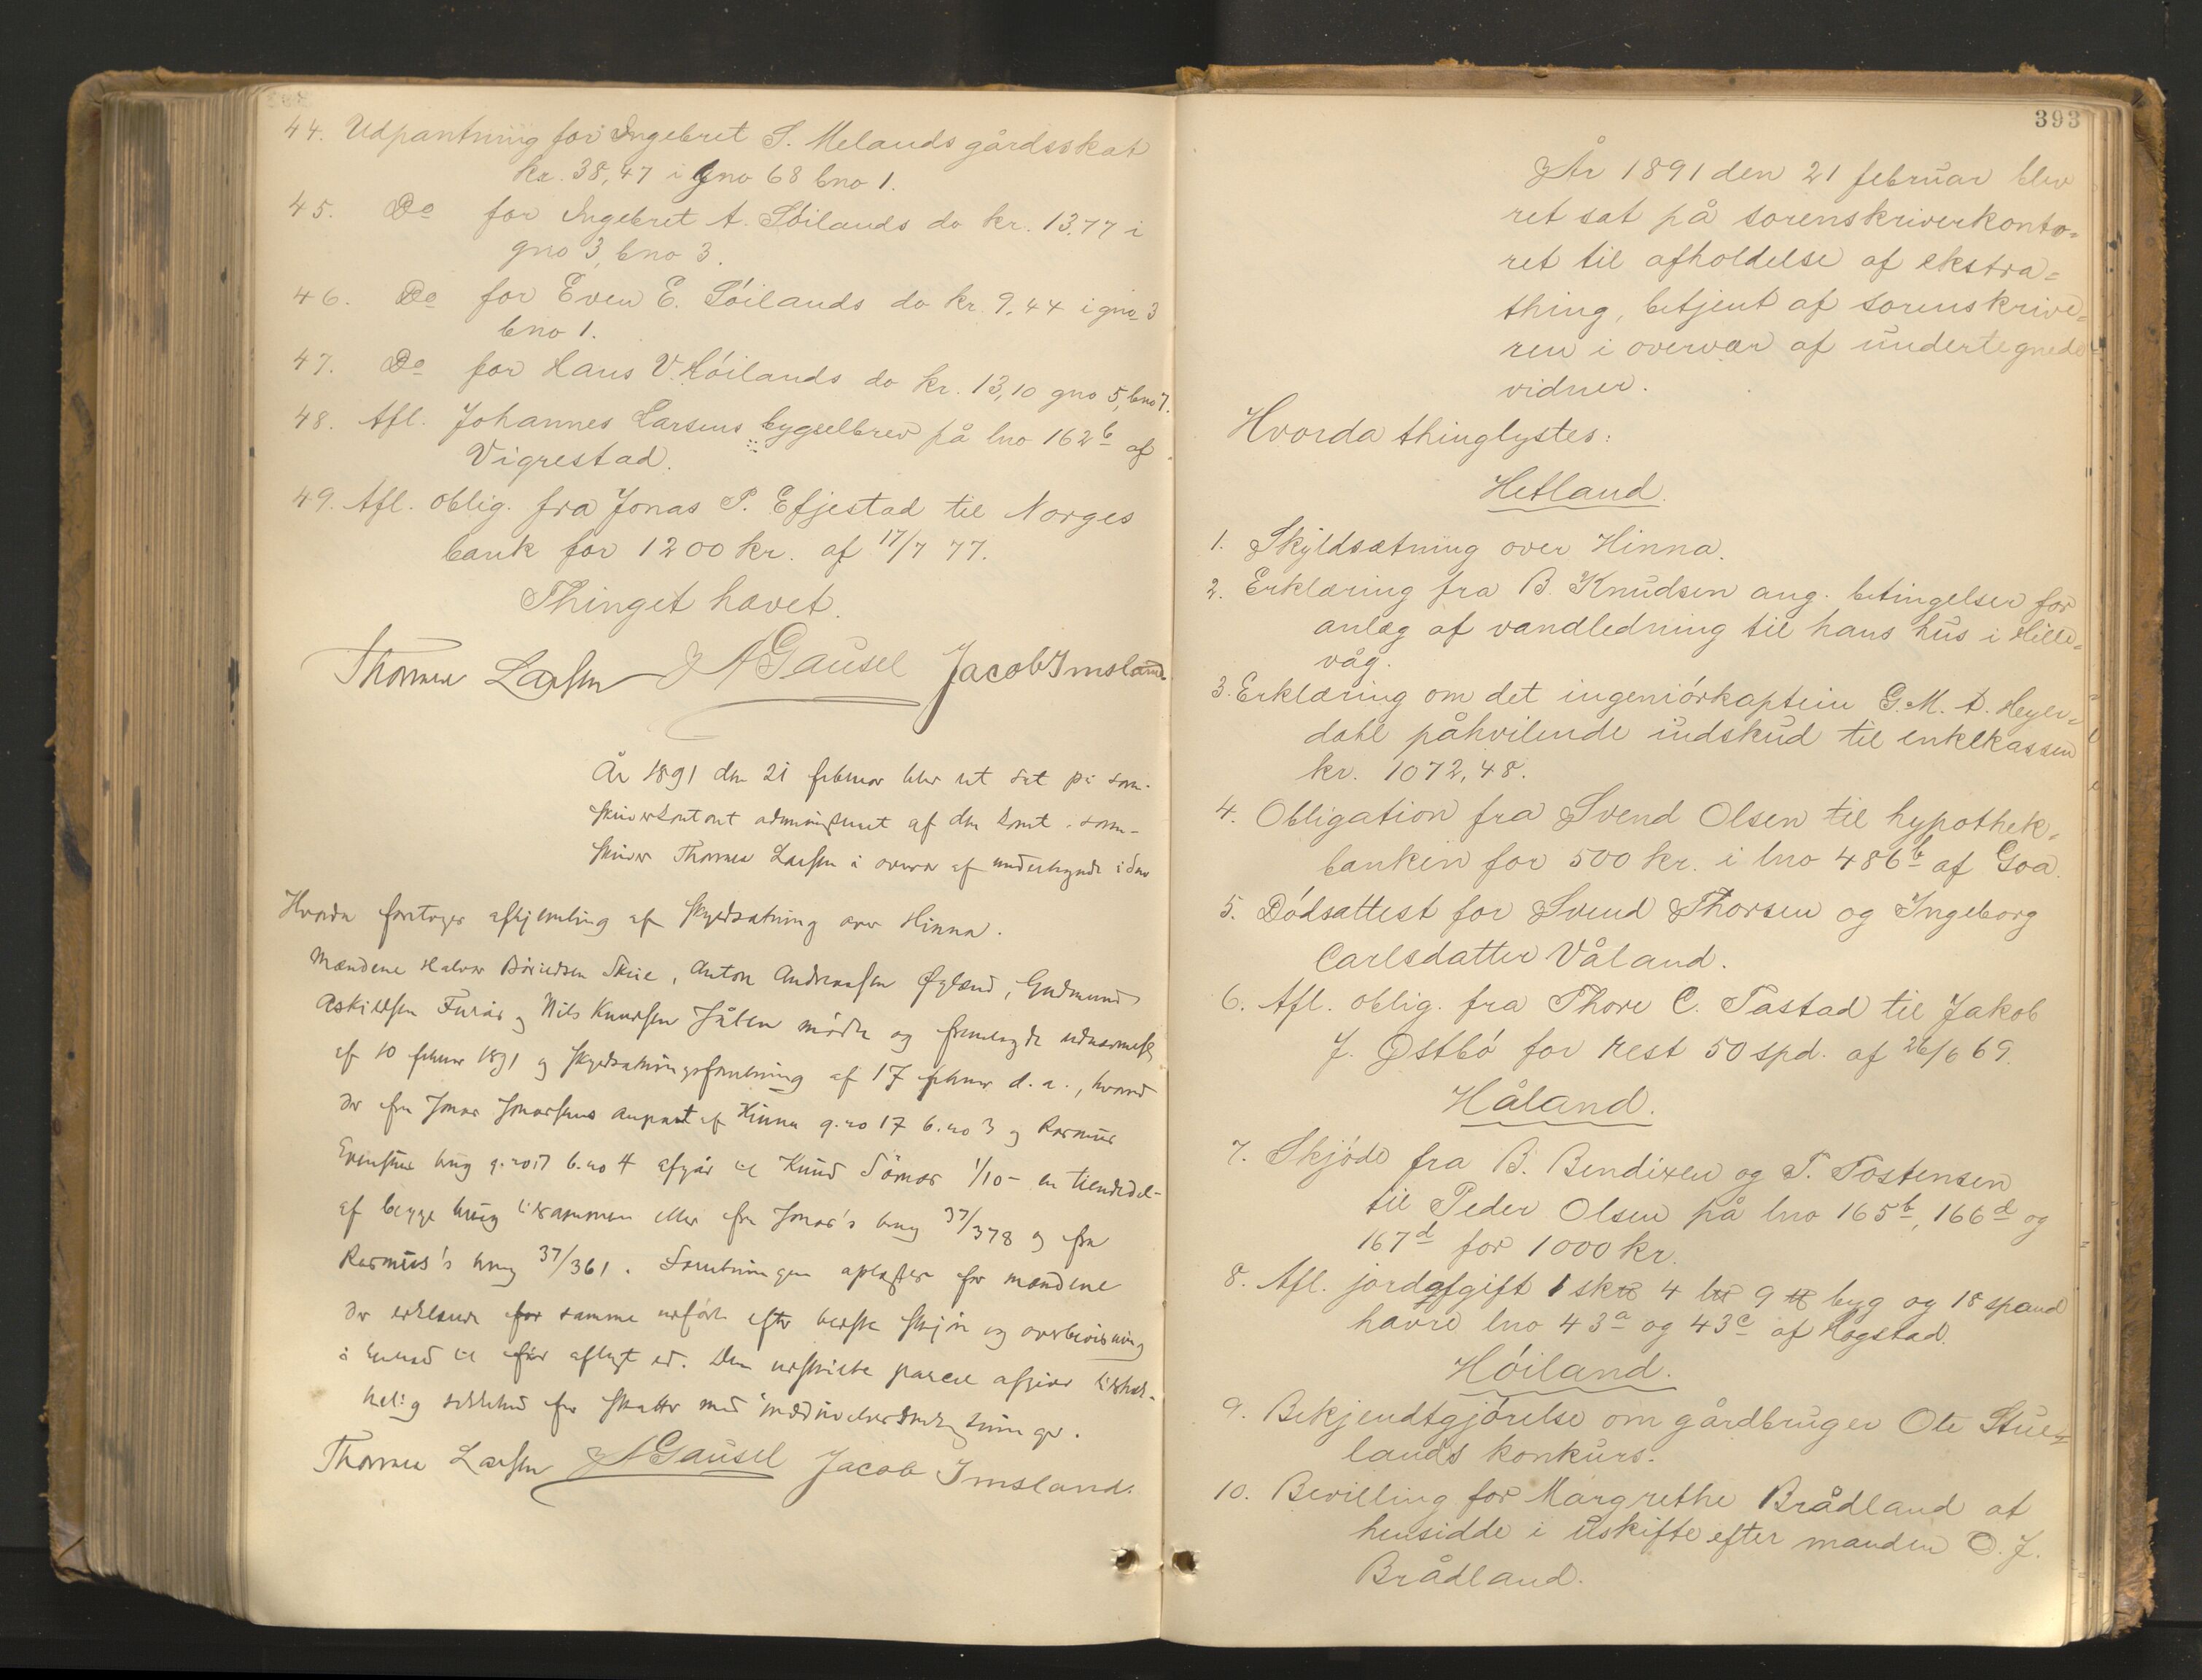 44. Udpantning for Ingebret S. Melands gårdsskat
kr. 38,47 i gno 68 bno 1.
45. Do for Ingebret A. Söilands do kr. 13,77 i
gno 3, bno 3.
46. Do for Even E. Söilands do kr. 9,44 i gno 3
bno 1.
47. Do for Hans V. Höilands do kr. 13,10 gno 5, bno 7.
48. Afl. Johannes Larsens bygselbrev på lno 162b af
Vigrestad.
49. Afl. oblig. fra Jonas P. Efjestad til Norges
bank for 1200 kr. af 17/7 77.
Thinget hævet.
Thomas Larsen J A Gausel Jacob Imsland
År 1891 den 21 februar blev ret sat på soren-
skriverkontoret administreret af den konst. soren-
skriver Thomas Larsen i overvær af undertegnede vidner
Hvorda foretoges afhjemling af skyldsætning over Hinna.
Mændene Halvor Skeie, Anton Andreassen Øgland, Gudmund
Askildsen Furås og Nils Knudsen Jåtten mödte og fremlagde
af 10 februar 1891 og skyldsætningsforretning af 17 februar d. a., hvorved
der fra Jonas Jonassens anpart af Hinna g. no 17 b. no 3 og Rasmus
brug g. no 17 b. no 4 afgår til Knud Sömes 1/10 - en tiendedel -
af begge brug tilsammen eller fra Jonas's brug 37/378 og fra
Rasmus's brug 37/361. Forretningen oplæstes for mændene
der erklærede samme udfört efter bedste skjön og overbevisning
i henhold til för aflagt ed. Den udskilte parcel afgiver tilstræk-
kelig sikkerhed for skatter med
Thomas Larsen J A Gausel Jacob Imsland.
393
År 1891 den 21 februar blev
ret sat på sorenskriverkonto-
ret til afholdelse af ekstra-
thing, betjent af sorenskrive-
ren i overvær af undertegnede
vidner.
Hvorda thinglystes:
Hetland.
1. Skyldsætning over Hinna.
2. Erklæring fra B. Knudsen ang. betingelser for
anlæg af vandledning til hans hus i Hille-
våg.
3. Erklæring om det ingeniörkaptein G. M. A. Heyer-
dahl påhvilende indskud til enkekassen
kr. 1072,48.
4. Obligation fra Svend Olsen til hypothek-
banken for 500 kr. i lno 486b af Goa.
5. Dödsattest for Svend Thorsen og Ingeborg
Carlsdatter Våland.
6. Afl. oblig. fra Thore C. Tastad til Jakob
J. Østbö for rest 50 spd. af 26/6 69.
Håland.
7. Skjöde fra B. Bendixen og T. Tostensen
til Peder Olsen på lno 165b, 166d og
167d for 1000 kr.
8. Afl. jordafgift 1 sk℔ 4 b℔ 9 ℔ byg og 18 spand
havre lno 43a og 43c af Hogstad.
Höiland.
9. Bekjendtgjörelse om gårdbruger Ole Stue-
lands konkurs.
10. Bevilling for Margrethe Brådland at
hensidde i uskifte efter manden O. J.
Brådland.